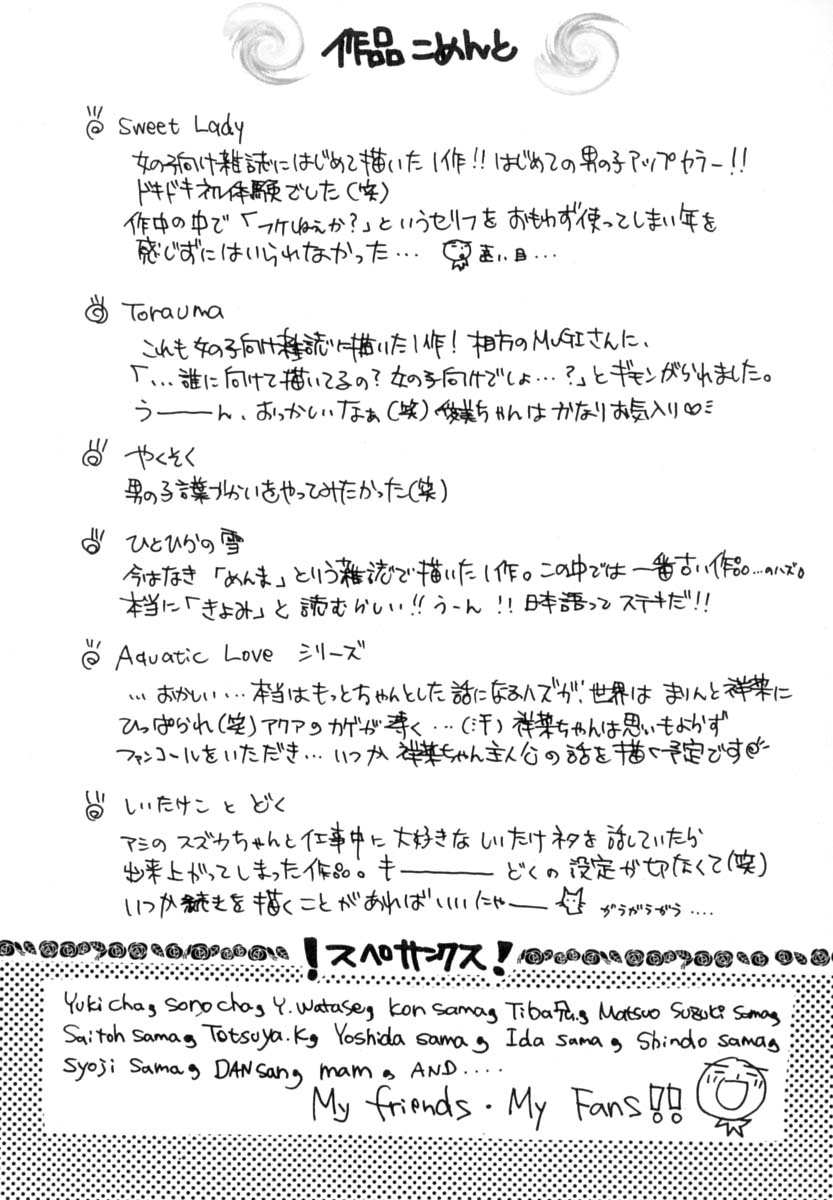 作品こめんと
Sweet Lady
女の子向け雑誌にはじめて描いた1作!!はじめての男の子アップカラー!!
ドキドキ初体験でした(笑)
作中の中で「フケしねぇか?」というセリフをおもわず使ってしまい年を
感じずにはいられなかった… 遠い目…
Torauma
これも女の子向け雑誌に描いた1作!相方のMUGIさんに、
「…誰に向けて描いてるの?女の子向けでしょ…?」とギモンがられました。
うーーん、おっかしいなぁ(笑) ちゃんはかなりお気入り♡
やくそく
男の子言葉づかいをやってみたかった(笑)
ひとひらの雪
今はなき「めんま」という雑誌で描いた1作。この中では一番古い作品…のハズ。
本当に「きよみ」と読むらしい!!うーん!!日本語ってステキだ!!
Aquatic Love シリーズ
…おかしい…本当はもっとちゃんとした話になるハズが、世界はまりんと祥菜に
ひっぱられ(笑)アクアのカゲが薄く…(汗)祥菜ちゃんは思いもよらず
ファンコールをいただき…いつか祥菜ちゃん主人公の話を描く予定です
しいたけことどく
アシのスズカちゃんと仕事中に大好きなしいたけネタを話していたら
出来上がってしまった作品。キーーーーどくの設定が切なくて(笑)
いつか続きを描くことがあればいいにゃー がうがうがう….
!スペサンクス!
Yukicha, sonocha, Y.watase, kon sama, Tiba兄, Matsuo Suzuki sama,
Saitoh sama, Totsuya.K, Yoshida sama, Ida sama, Shindo sama,
Syoji sama, DANsan, mam, AND....
My friends・My Fans!!